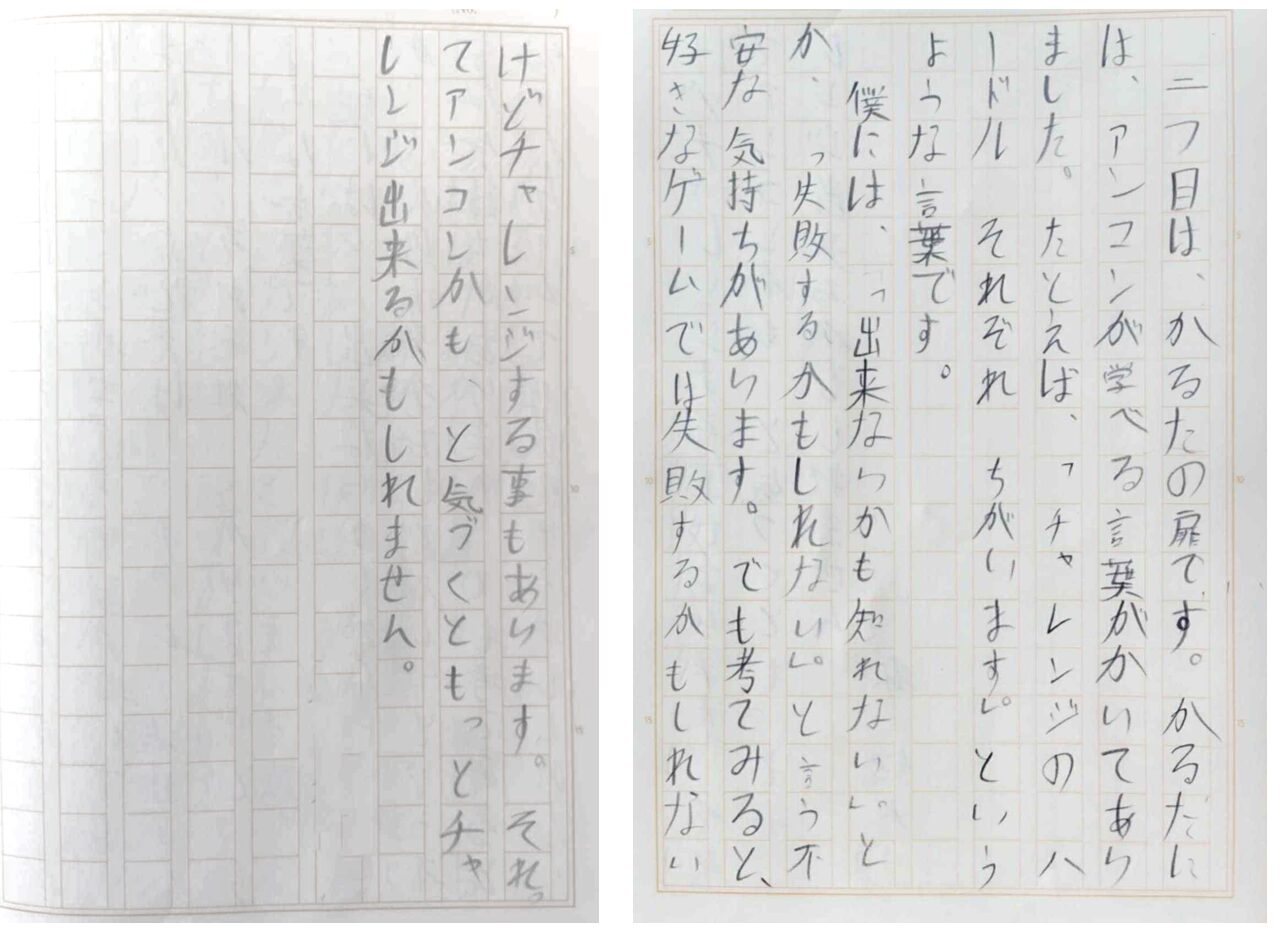 二つ目は、かるたの扉です。かるたに
は、アンコンが学べる言葉がかいてあり
ました。たとえば、「チャレンジの ハ
ードル それぞれ ちがいます。」という
ような言葉です。
僕には、「出来ないかも知れない。」と
か、「失敗するかもしれない。」と言う不
安な気持ちがあります。でも考てみると、
好きなゲームでは失敗するかもしれない
けどチャレンジする事もあります。それっ
てアンコンかも、と気づくともっとチャ
レンジ出来るかもしれません。